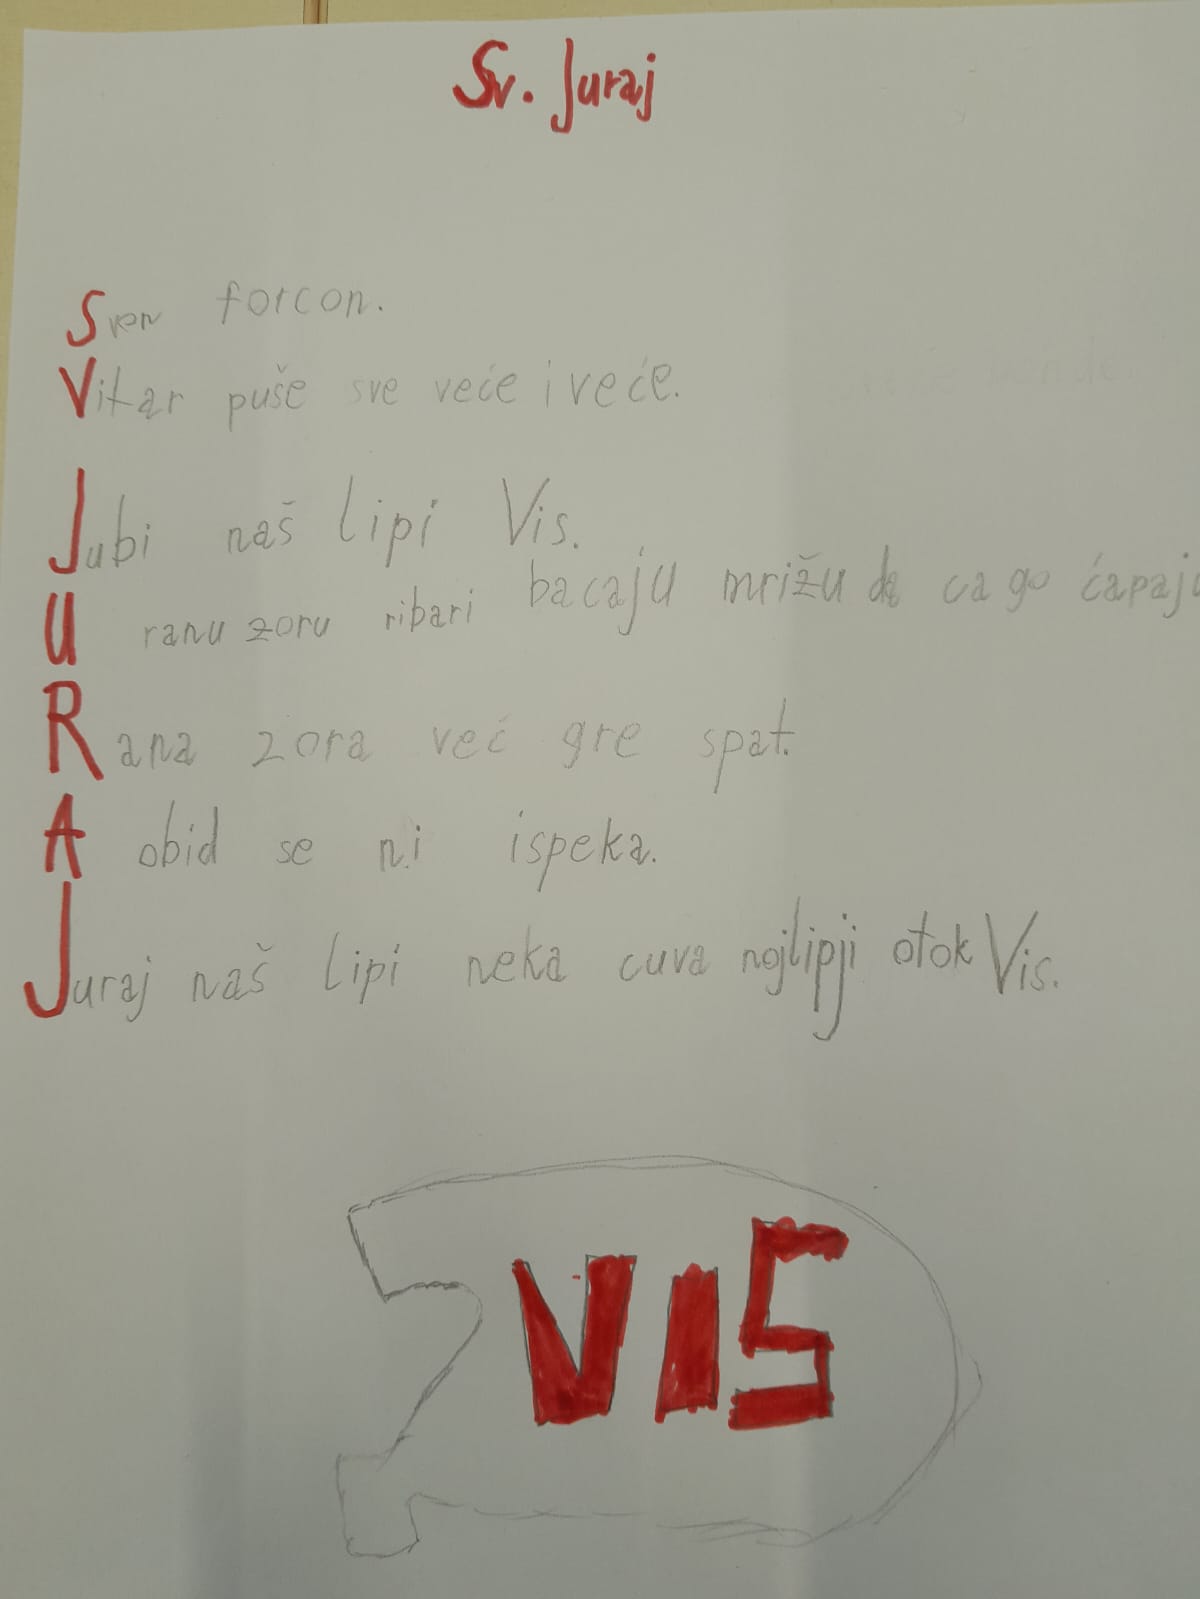 Sv. Juraj
Sven forcon.
Vitar puše sve veće i veće.
Jubi naš lipi Vis.
U ranu zoru ribari bacaju mrižu da ca go ćapaju
Rana zora već gre spat.
A obid se ni ispeka.
Juraj naš lipi neka cuva nojlipji otok Vis.
VIS